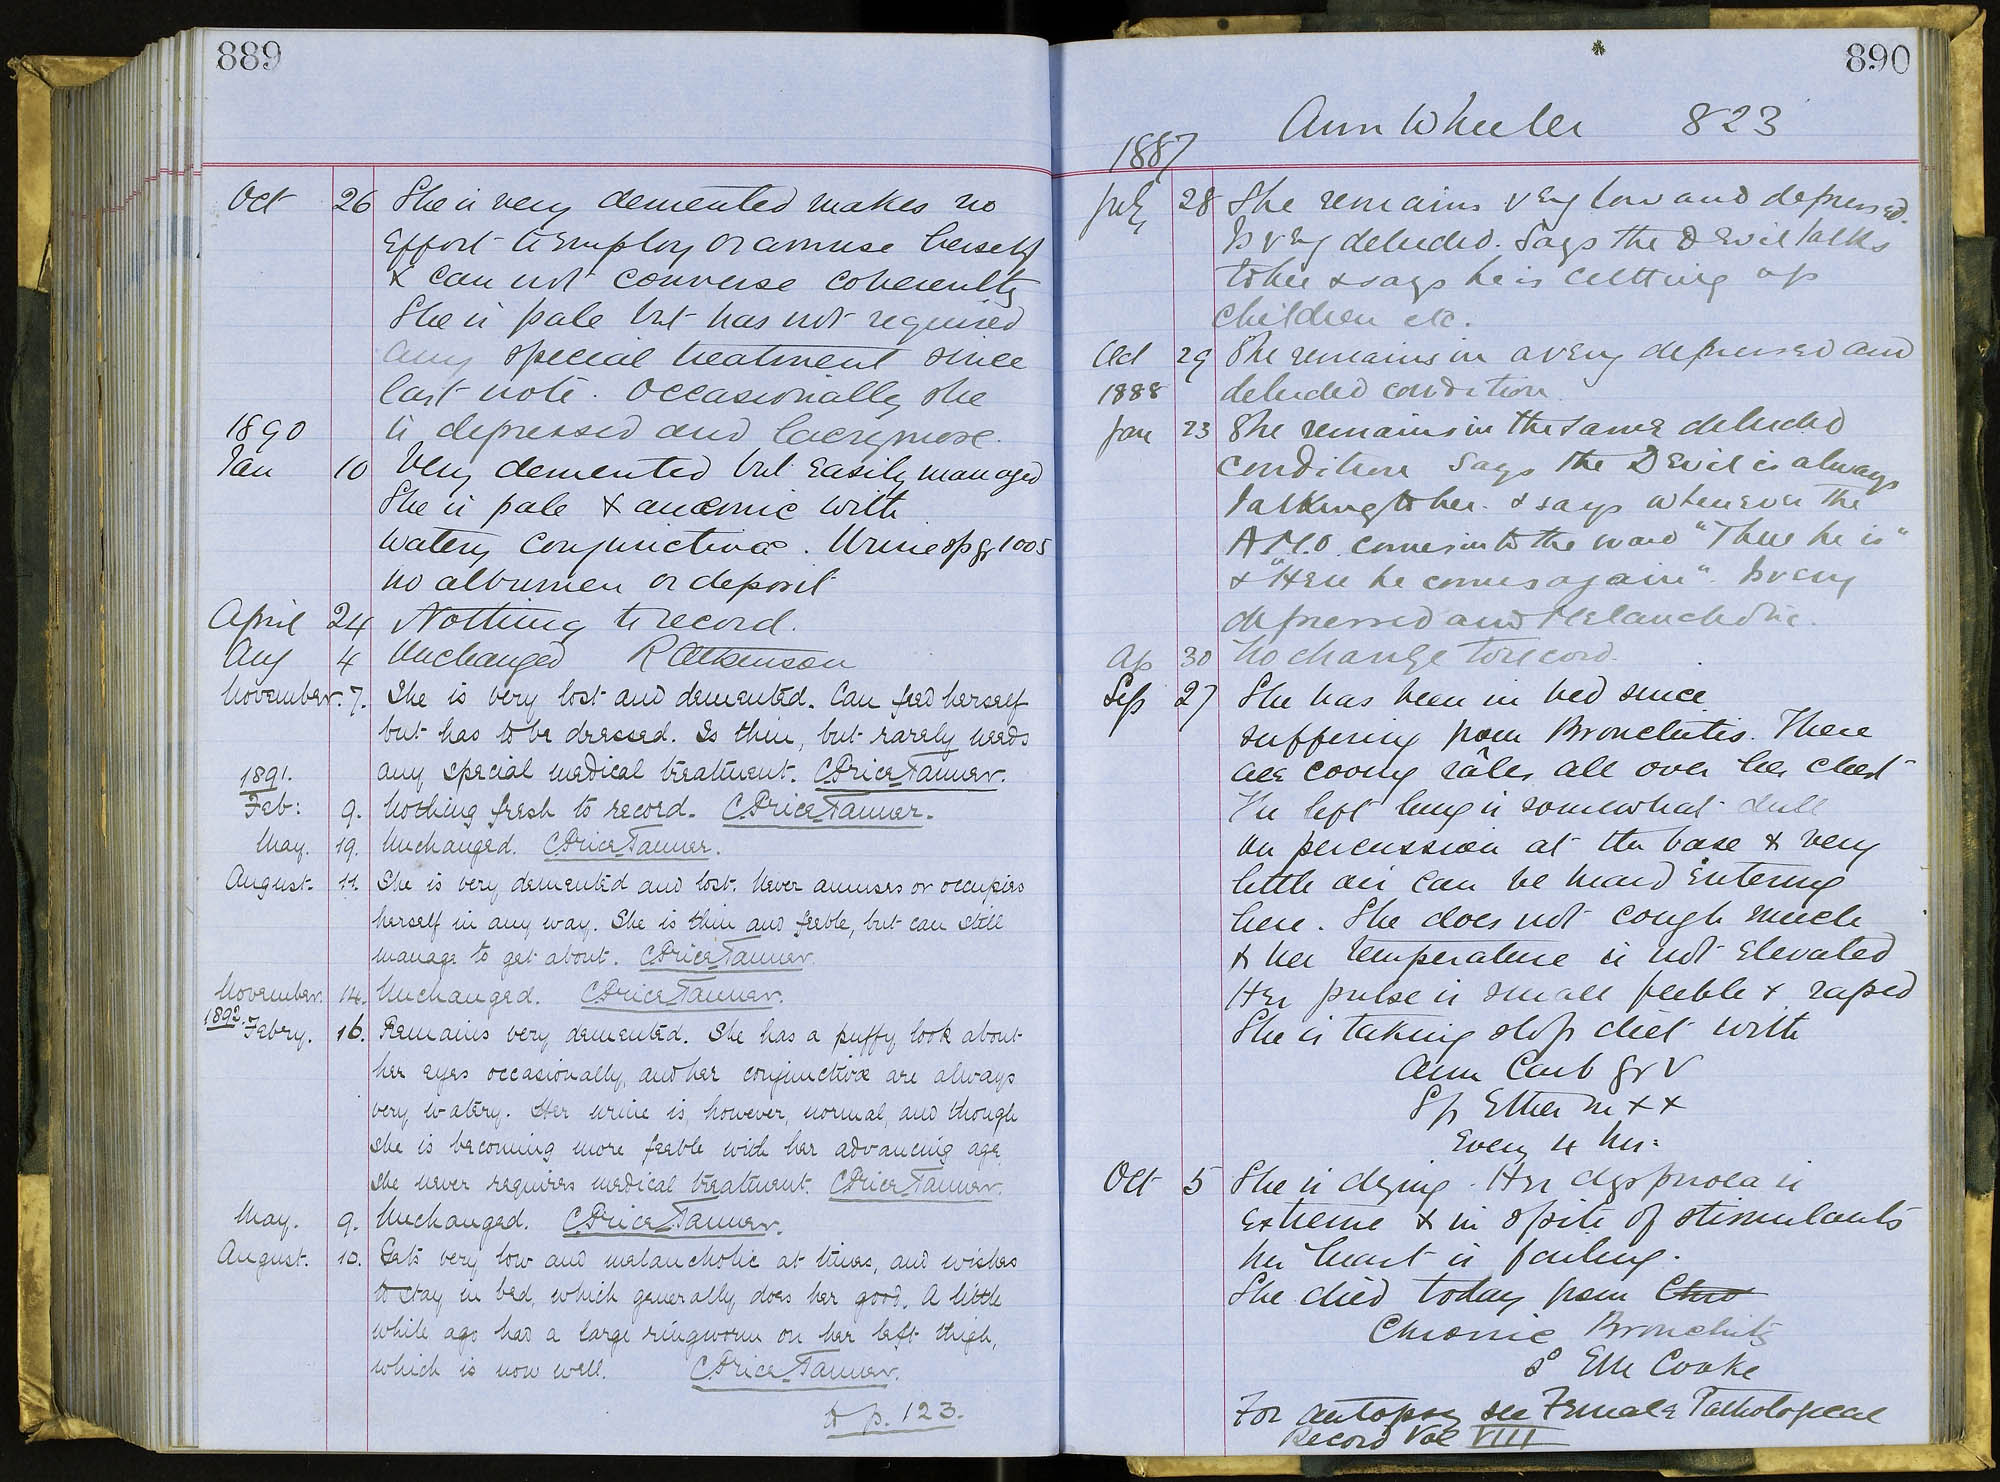 889
Oct 26 She is very demented makes no
effort to employ or amuse herself
& can not converse coherently
She is pale but has not required
any special treatment since
last note. Occasionally she
1890
is depressed and lacrymose.
Jan 10 Very demented but easily managed
She is pale & anæmic with
watery conjunctivæ. Urine sp gr 1005
no albumen or deposit
April 24 Nothing to record.
Aug 4 Unchanged R Atkinson
November. 7. She is very lost and demented. Can feed herself
but has to be dressed. Is thin, but rarely needs
any special medical treatment. C Price Tanner.
1891.
Feb: 9. Nothing fresh to record. C Price Tanner.
May. 19. Unchanged. C Price Tanner.
August. 11. She is very demented and lost. Never amuses or occupies
herself in any way. She is thin and feeble, but can still
manage to get about. C Price Tanner.
November. 14. Unchanged. C Price Tanner.
1892.
Febry. 16. Remains very demented. She has a puffy look about
her eyes occasionally, and her conjunctivæ are always
very watery. Her urine is, however, normal, and though
she is becoming more feeble with her advancing age
she never requires medical treatment. C Price Tanner.
May. 9. Unchanged. C Price Tanner.
August. 10. Gets very low and melancholic at times, and wishes
to stay in bed, which generally does her good. A little
while ago had a large ringworm on her left thigh,
which is now well. C Price Tanner.
to p. 123.
890
Ann Wheeler 823
1887
July 28 She remains very low and depressed.
Is very deluded. Says the Devil talks
to her & says he is cutting up
children etc.
Oct 29 She remains in a very depressed and
1888 deluded condition.
Jan 23 She remains in the same deluded
condition Says the Devil is always
talking to her. & says whenever the
A.M.O. comes into the ward "There he is"
& "Here he comes again". Is very
depressed and Melancholic.
Ap 30 No change to record.
Sep 27 She has been in bed since
suffering from Bronchitis. There
are cooing râles all over her chest
The left lung is somewhat dull
on percussion at the base & very
little air can be heard entering
here. She does not cough much
& her temperature is not elevated
Her pulse is small feeble & rapid
She is taking slop diet with
Amm Carb gr V
Sp Ether m xx
Every 4 hrs:
Oct 5 She is dying. Her dyspnoea is
extreme & in spite of stimulants
her heart is failing.
She died today from Chro
Chronic Bronchitis
S E M Cooke
For autopsy see Female Pathological
Record Vol VIII